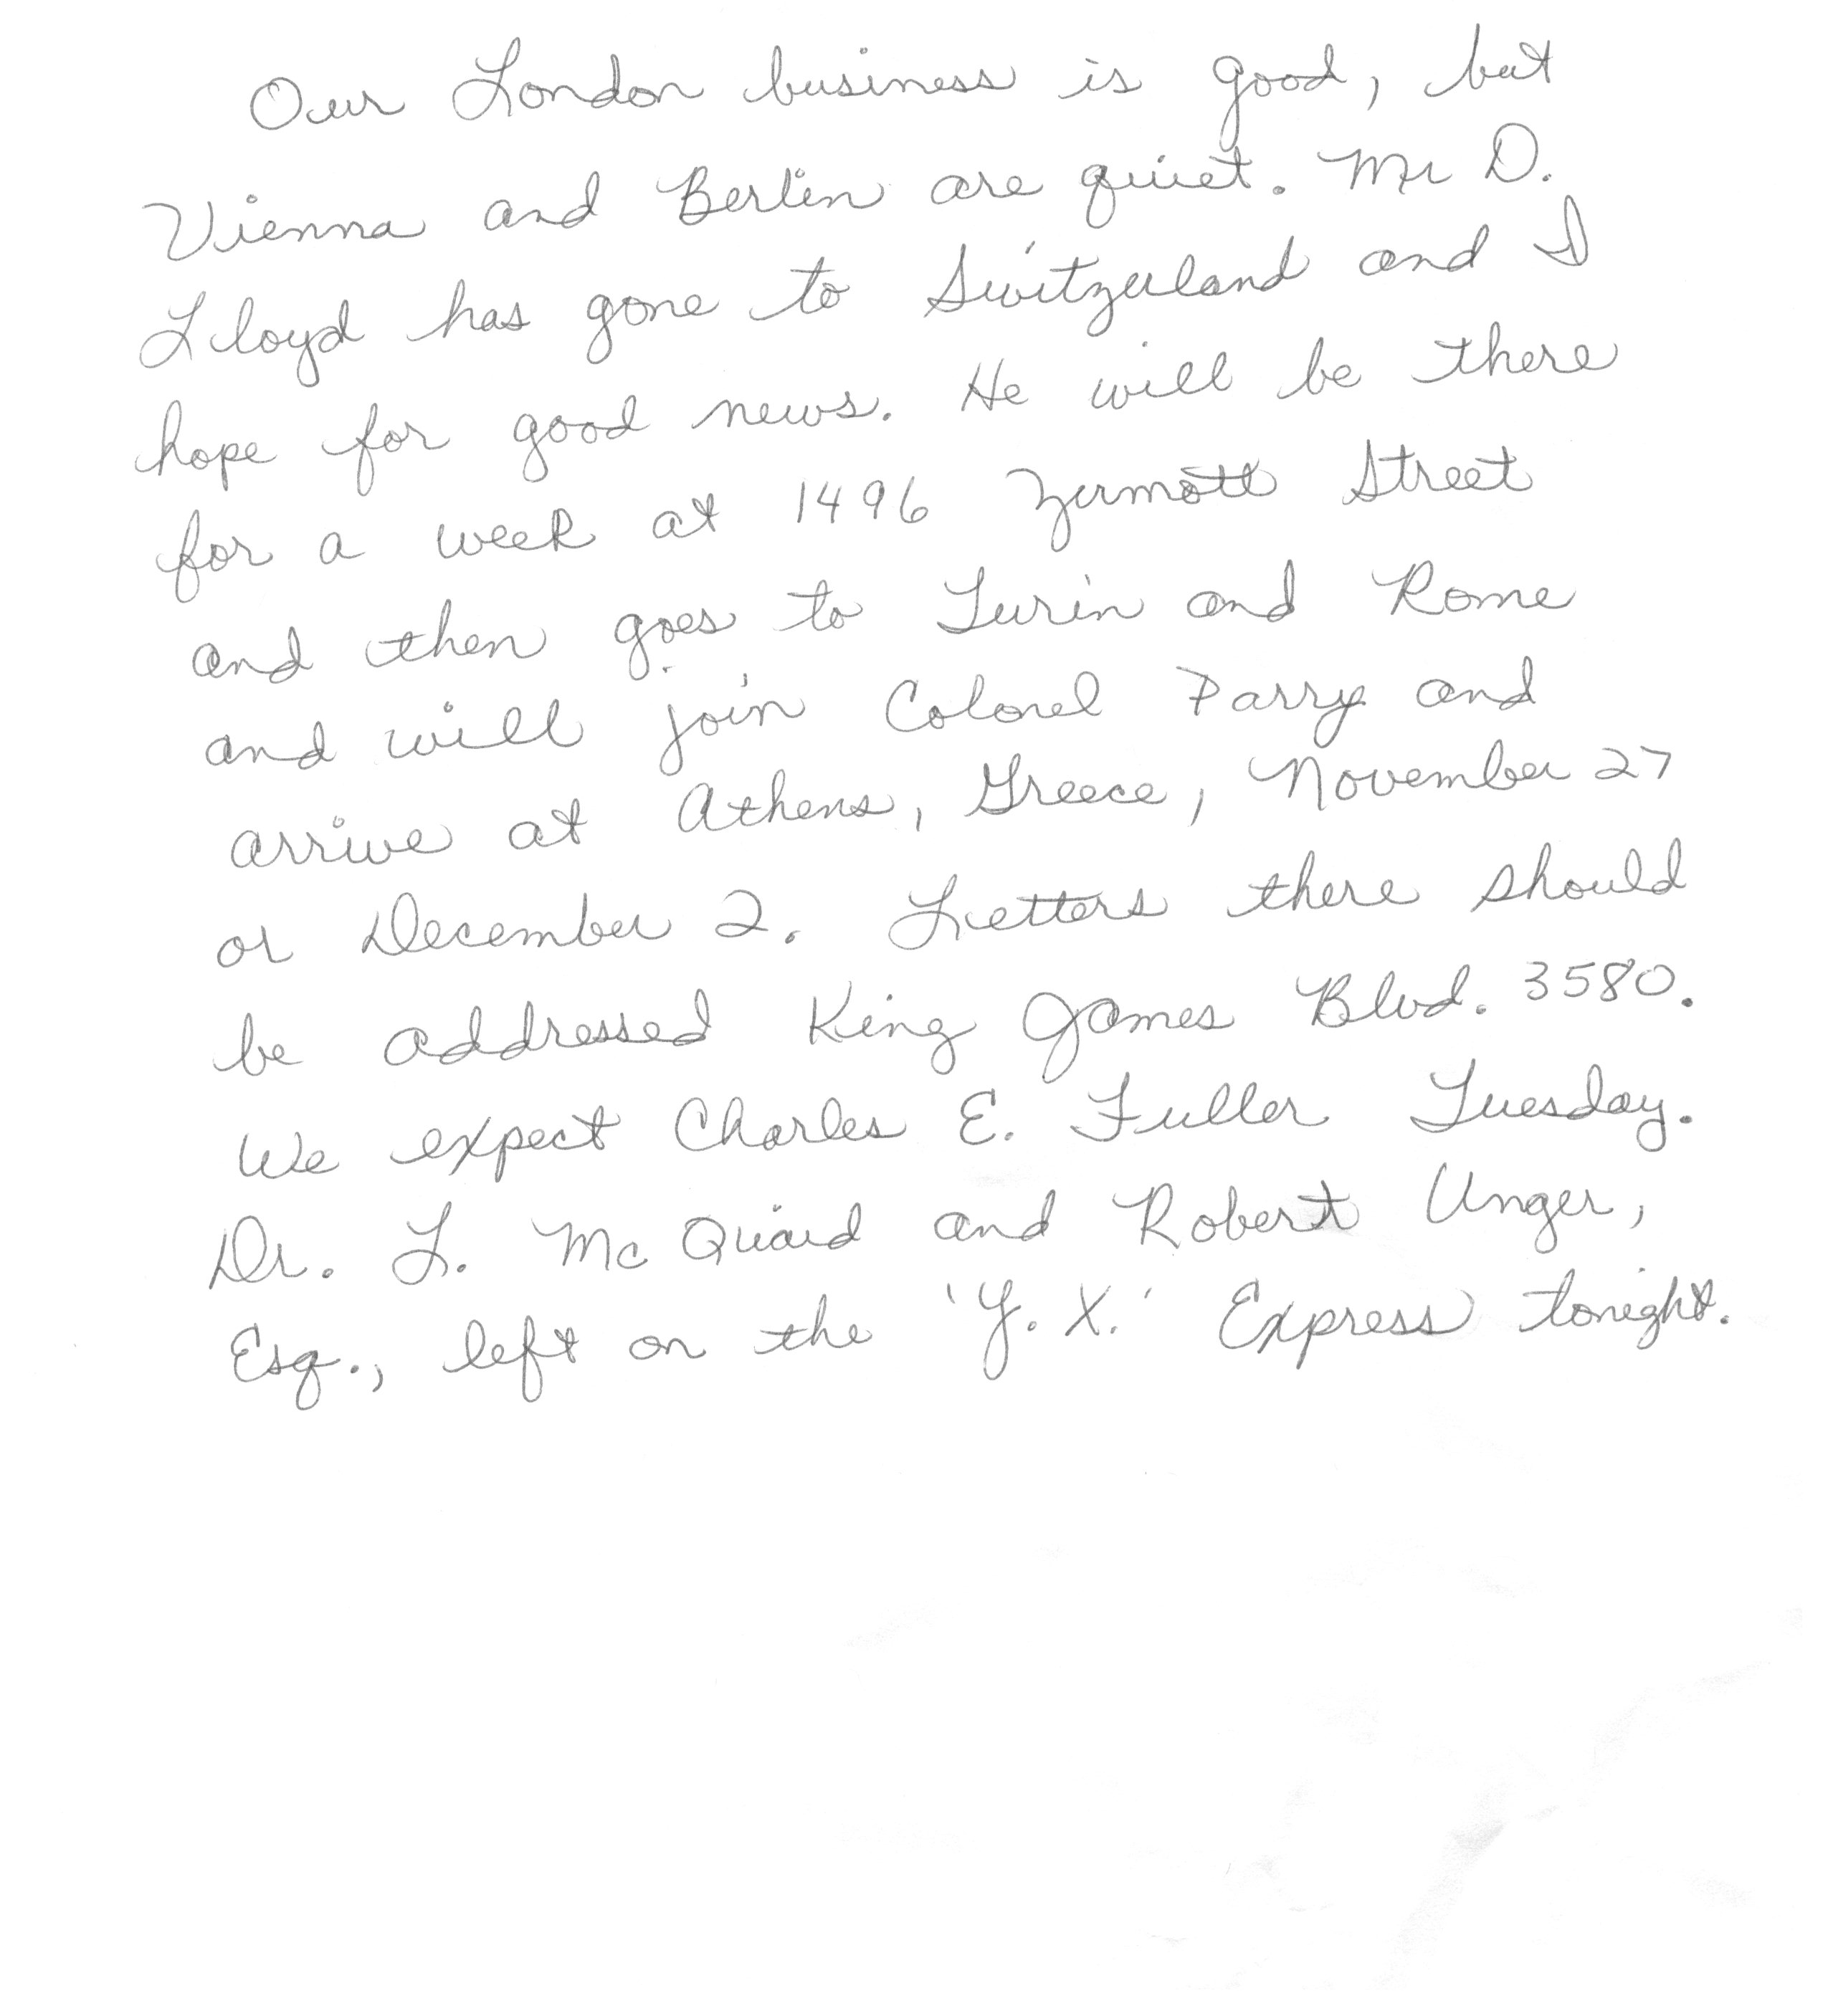 Our London business is good, but
Vienna and Berlin are quiet. Mr D.
Lloyd has gone to Switzerland and I
hope for good news. He will be there
for a week at 1496 Zermott Street
and then goes to Turin and Rome
and will join Colonel Parry and
arrive at Athens, Greece, November 27
or December 2. Letters there should
be addressed King James Blvd. 3580.
We expect Charles E. Fuller Tuesday.
Dr. L. Mc Quaid and Robert Unger,
Esq., left on the 'Y. X.' Express tonight.